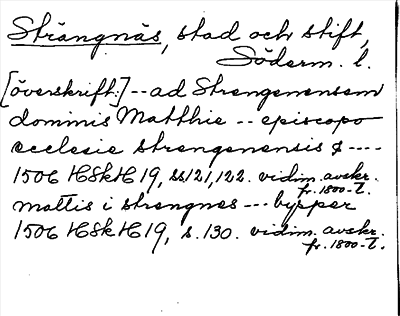 Strängnäs, stad och stift,
Söderm. l.
[överskrift:] -- ad Strengenensem
dominis Matthie -- episcopo
ecclesie strengenensis & ----
1506 HSkH 19, ss 121, 122. vidim. avskr.
fr. 1800-t.
mattis i strengnes --- bysper
1506 HSkH 19, s. 130. vidim. avskr.
fr. 1800-t.